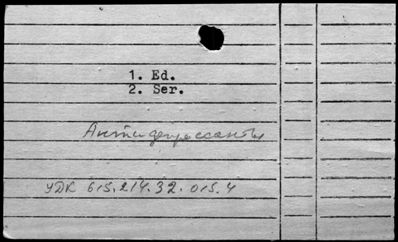 1. Ed.
2. Ser.
Антидепрессанты
УДК 615.214.32.015.4